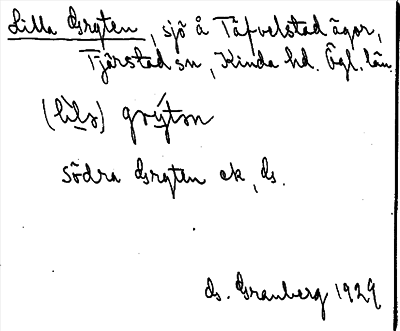 Lilla Gryten, sjö å Täfvelstad ägor,
Tjärstad sn, Kinda hd. Ögl. län.
(lìl̲a) grý̲tən
södra Gryten ek, ds.
G. Granberg 1929